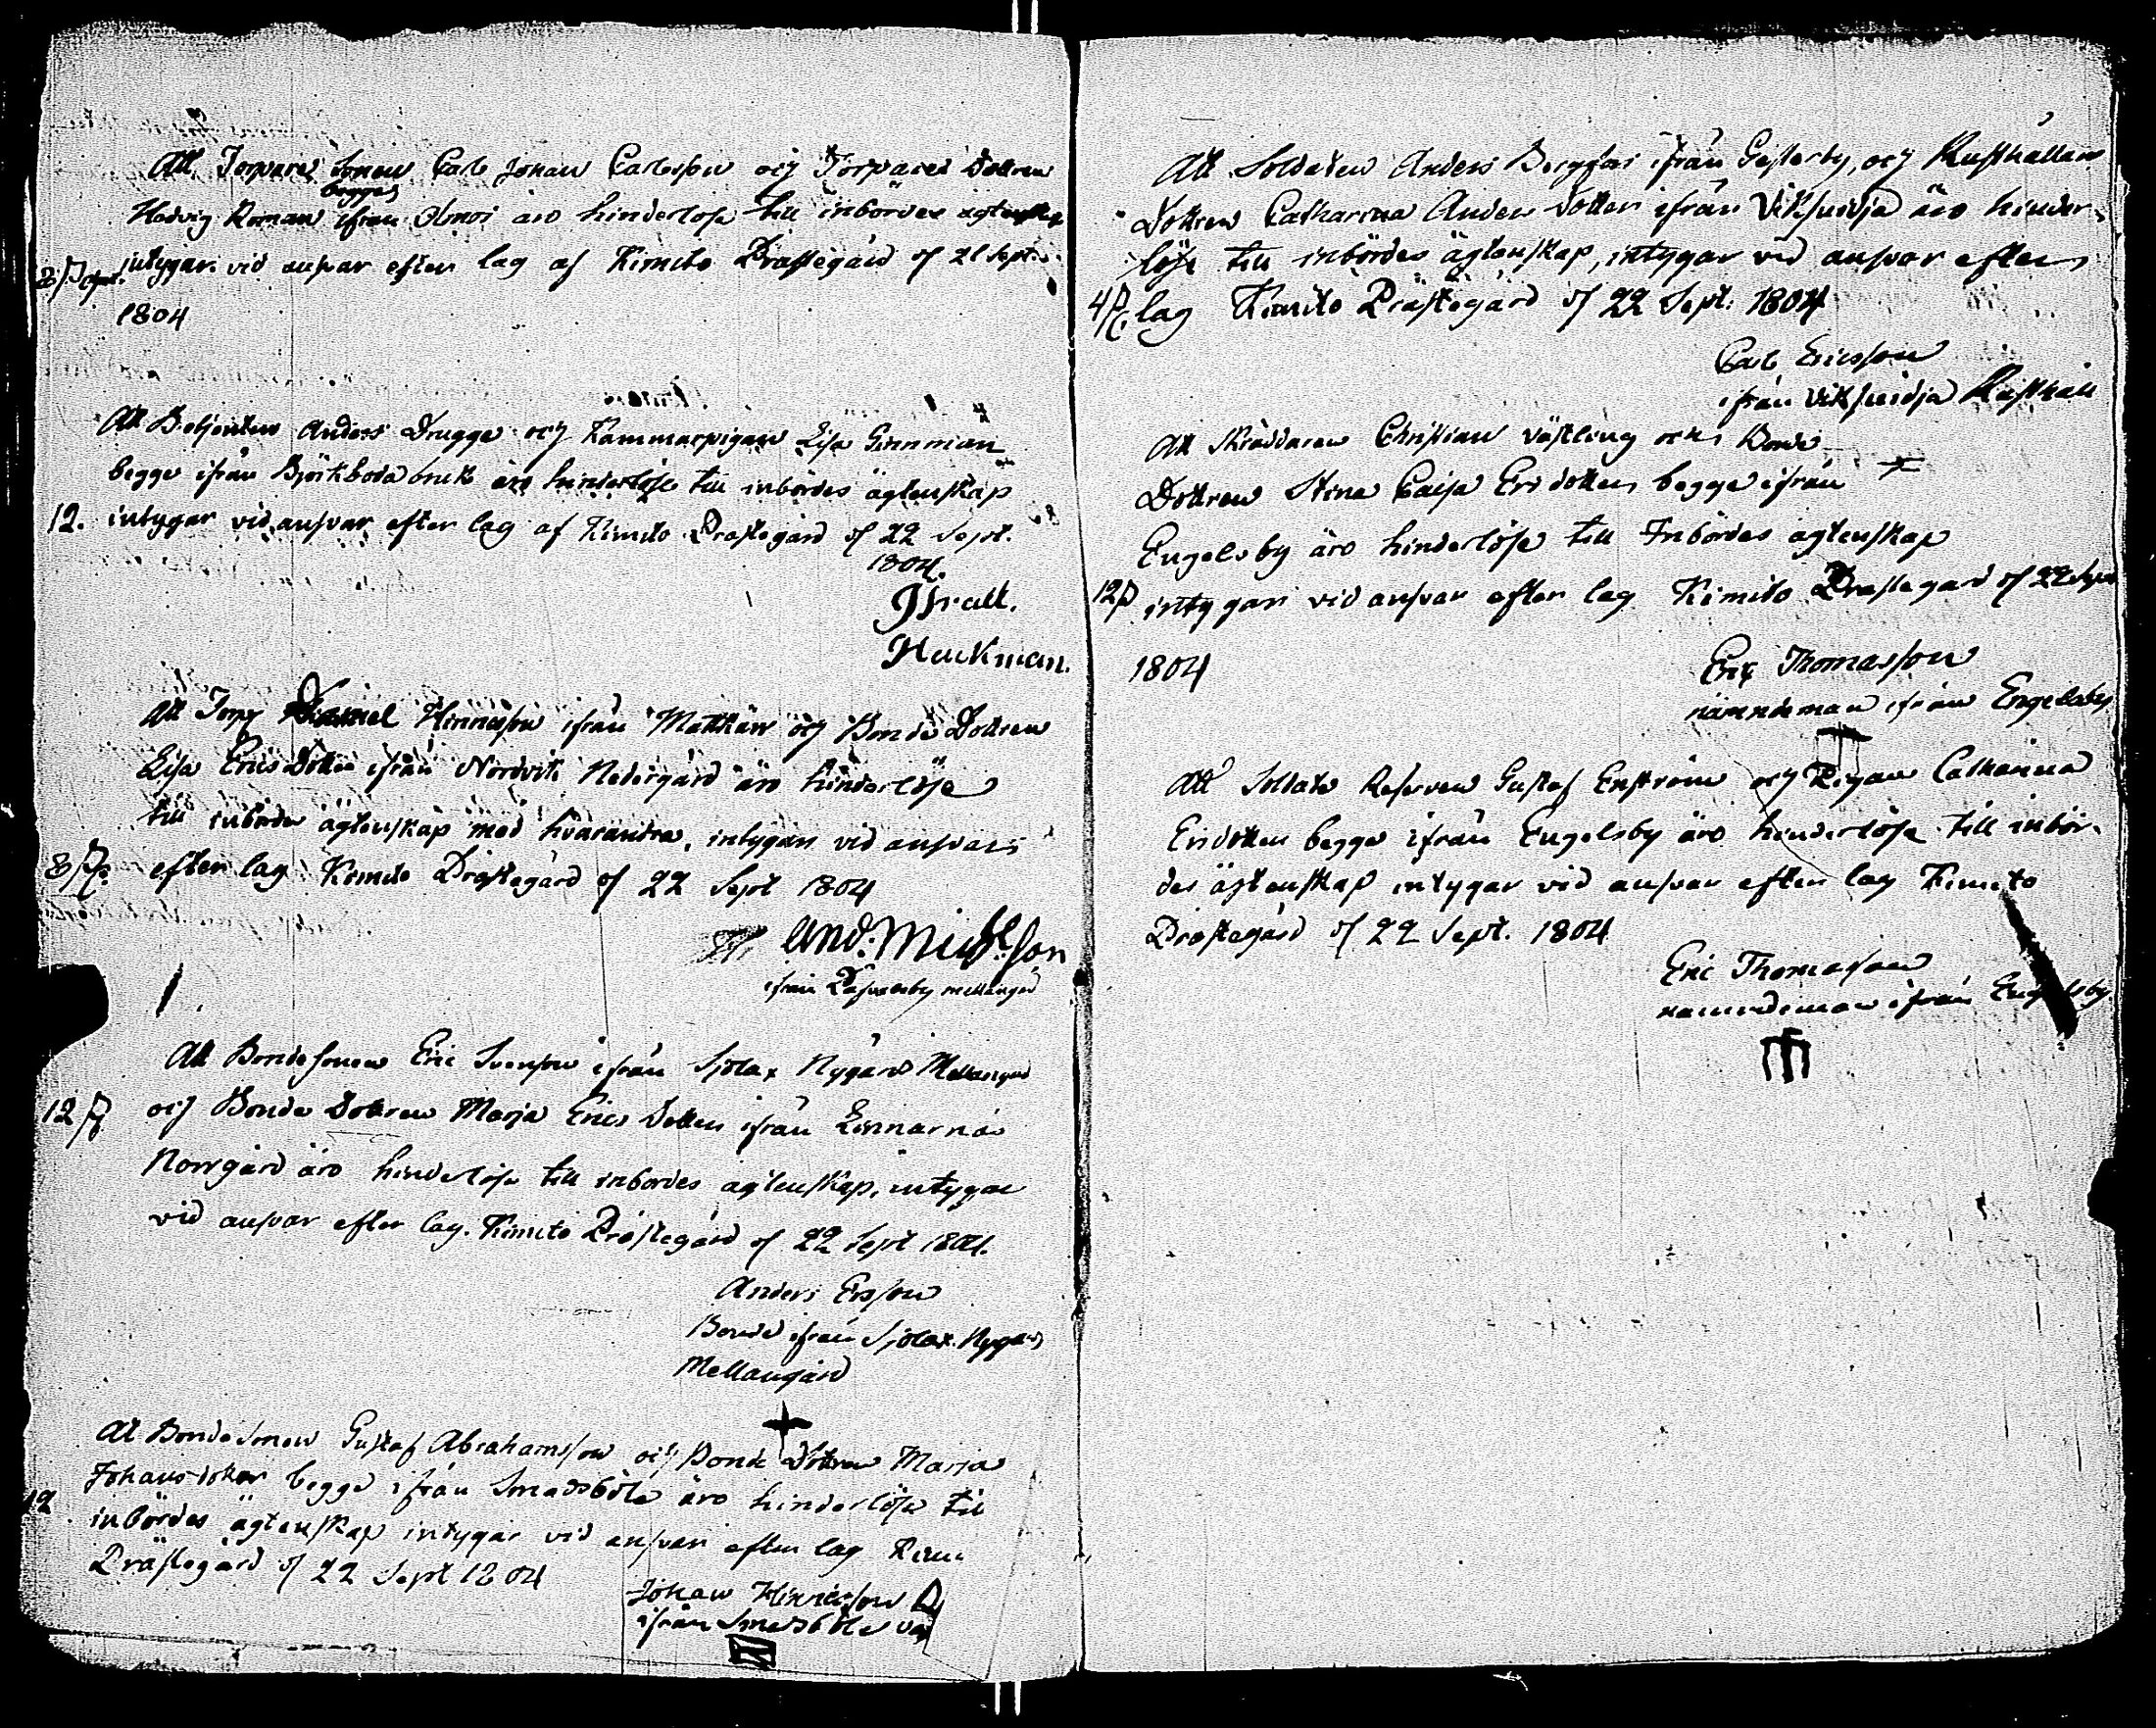 Att Torpare Sonen Carl Johan Carlsson och Torpares Dottren
begge
Hedvig Roman ifrån Olmoi äro hinderlose till inbördes ägtenskap
intygar vid ansvar efter lag af Kimito Prästegård d 21 Sept.
1804
Att Betjenten Anders Drugge och Kammarpigan Lisa
begge ifrån Björkboda bruk äro hinderlöse till inbördes ägtenskap
12. intygar vid ansvar efter lag af Kimito Prästegård d 22 Sept.
1804.
Hackman.
Att Daniel Hinricsson ifrån Mattkärr och Bonde Dottren
Lisa Erics Dotter ifrån Nordvik Nedergård äro hinderlöse
till inbördes ägtenskap med hvarandra, intygar vid ansvar
8 efter lag Kimito Prästegård d 22 Sept 1804
And: Mich:son
ifrån mellangrd
Att Bondesonen Eric Svensson ifrån Sjölax Nygård Mellangrd
12 och Bonde Dottren Maria Erics Dotter ifrån Linnarnäs
Norrgård äro hinderlöse till inbördes ägtenskap, intygar
vid ansvar efter lag. Kimito Prästegård d 22 Sept 1804.
Anders Ersson
Bonde ifrån Sjölax Nygård
Mellangård
At Bondesonen Gustaf Abrahamsson och Bonde Dottren Maria
Johansdoter begge ifrån Smedsböle äro hinderlöse till
12 inbördes ägtenskap intygar vid ansvar efter lag Kimi
Prästegård d 22 Sept 1804
Johan Hinricsson
ifrån Smedsböle
Att Soldaten Anders Bergfors ifrån Gesterby, och Rusthållare
Dottren Catharina Anders Dotter ifrån Viksvidja äro hinder-
löse till inbördes ägtenskap, intygar vid ansvar efter
4 lag Kimito Prästegård d 22 Sept. 1804
Carl Ericsson
ifrån Viksvidja Rusthåll
Att Skräddaren Christian Västling och Bonde
Dottren Stina Caisa Ersdotter begge ifrån
Engelsby äro hinderlöse till Inbördes ägtenskap
12 intygar vid ansvar efter lag Kimito Prästegård d 22 Sept
1804
Eric Thomasson
nämndeman ifrån Engelsby
Att Soldats Reserven Gustaf Enström och Pigan Catharina
Ersdotter begge ifrån Engelsby äro hinderlöse till inbör-
des ägtenskap intygar vid ansvar efter lag Kimito
Prästegård d 22 Sept. 1804
Eric Thomasson
nämndeman ifrån Engelsby